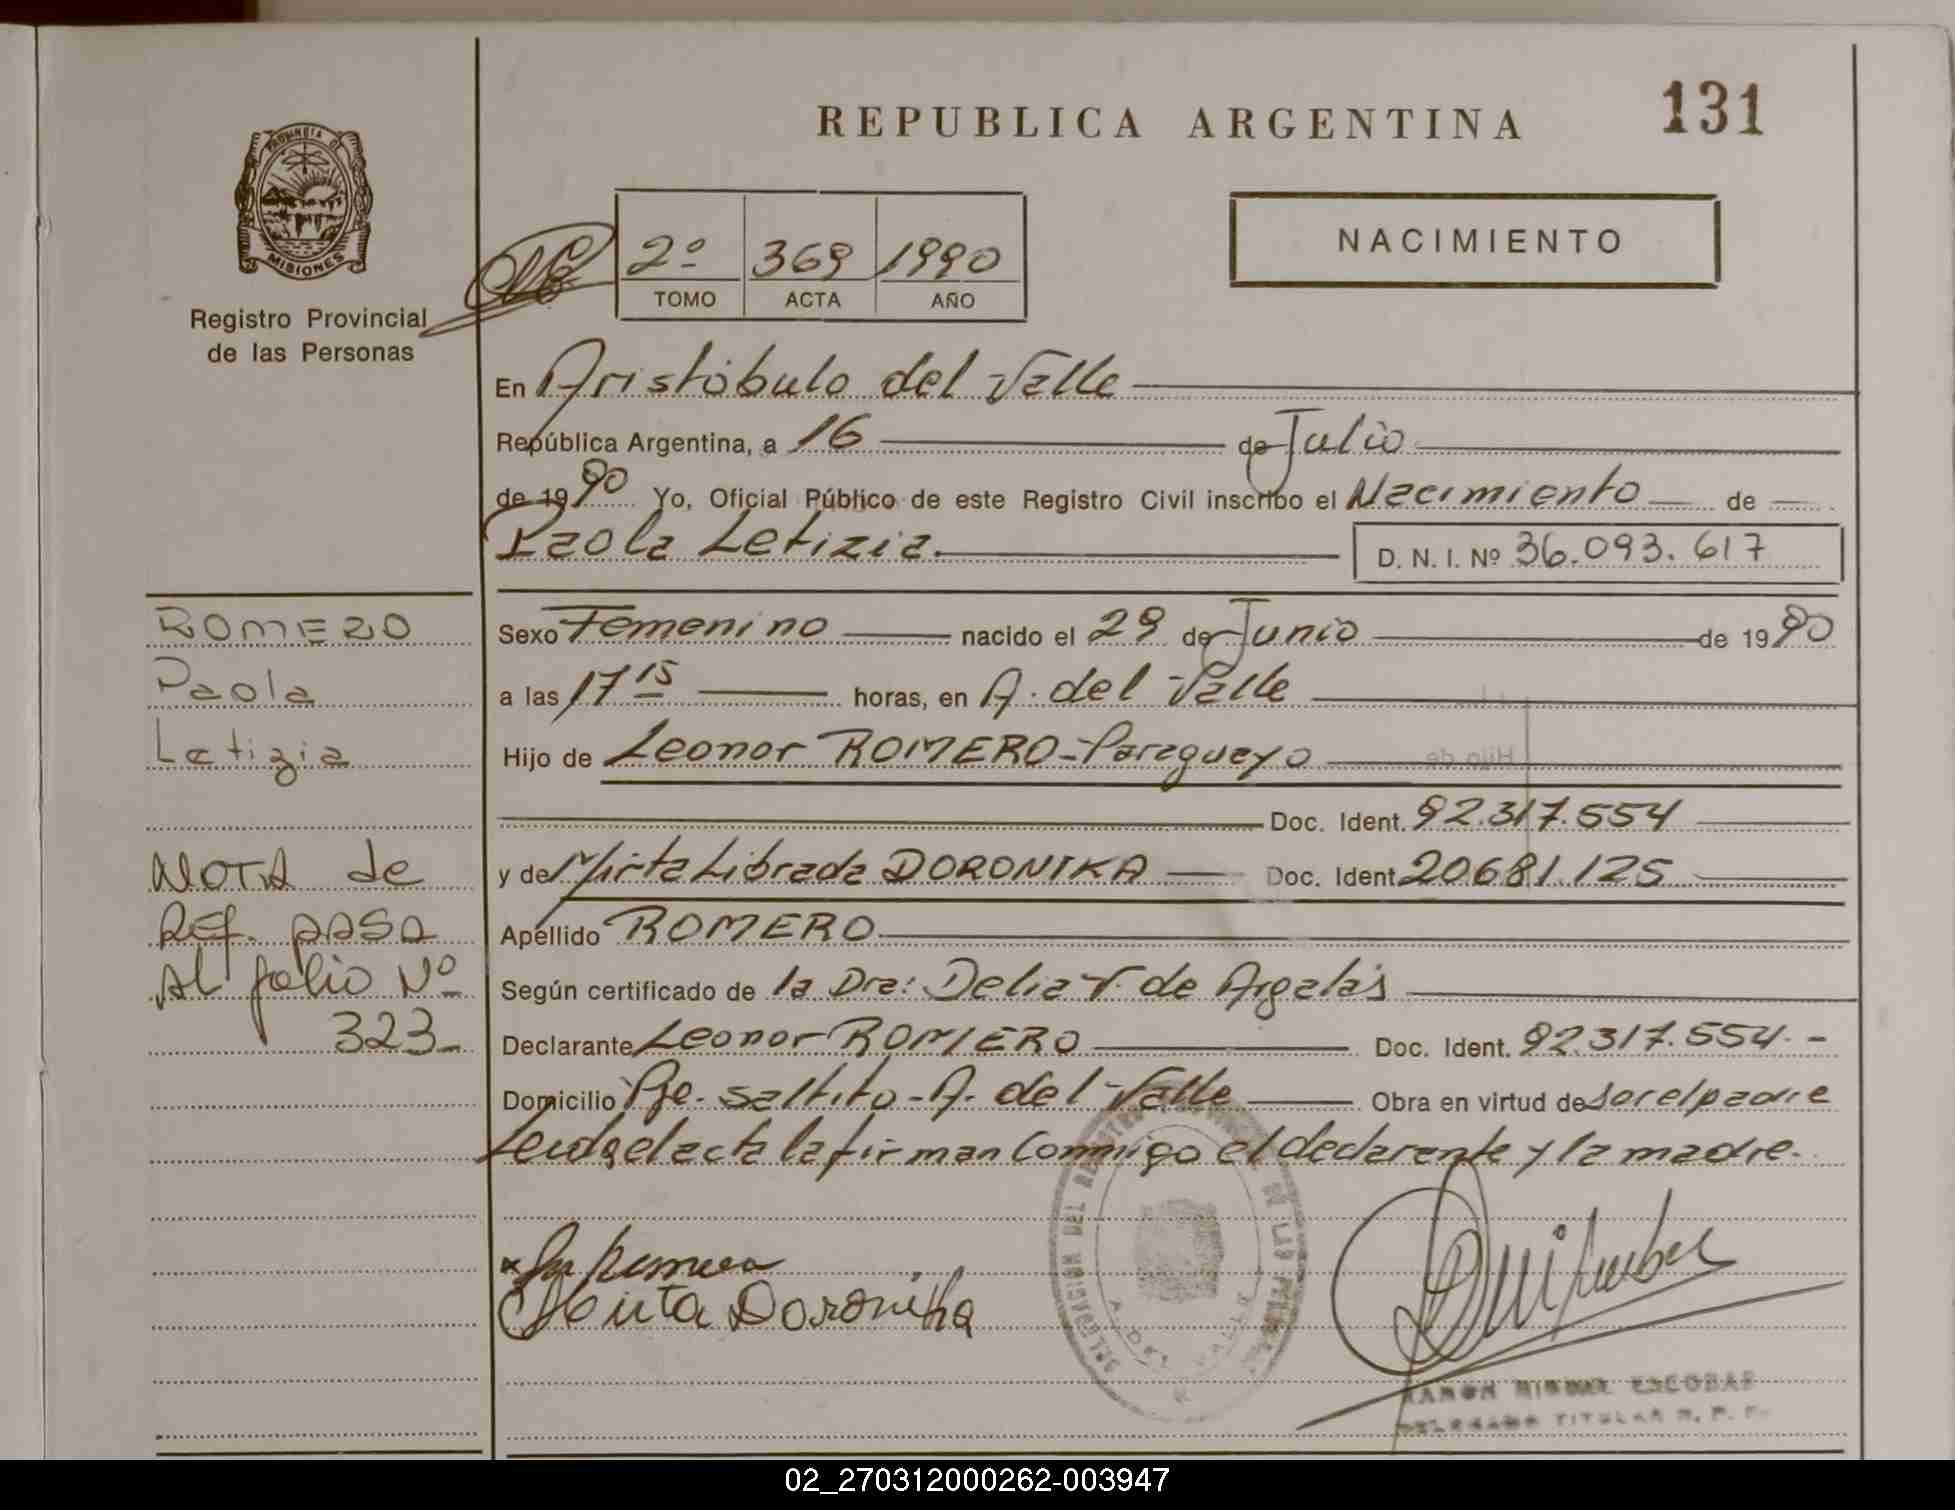 REPUBLICA ARGENTINA
131
PROVINCIA DE
MISIONES
Registro Provincial
de las Personas
2º 369 1990
TOMO ACTA AÑO
NACIMIENTO
En Aristóbulo del Valle
República Argentina, a 16 de Julio
de 1990 Yo, Oficial Público de este Registro Civil inscribo el Nacimiento de
Paola Letizia. D. N. I. Nº 36.093.617
Sexo Femenino nacido el 29 de Junio de 1990
a las 17 15 horas, en A. del Valle
Hijo de Leonor ROMERO-Paraguayo
Doc. Ident. 92.317.554
y de Mirta Librada DORONIKA Doc. Ident 20681.125
Apellido ROMERO
Según certificado de la Dra: Delia V. de Argatás
Declarante Leonor ROMERO Doc. Ident. 92.317.554.-
Domicilio Pje. saltito-A. del Valle Obra en virtud de ser el padre
Leida el acta la firman conmigo el declarante y la madre.
ROMERO
Paola
Letizia
NOTA de
REF. PASA
Al folio Nº
323-
Mirta Doronika
DELEGACION DEL REGISTRO PROVINCIAL DE LAS PERSONAS
A. DEL VALLE
RAMON MIGUEL ESCOBAR
DELEGADO TITULAR R. P. P.
02_270312000262-003947